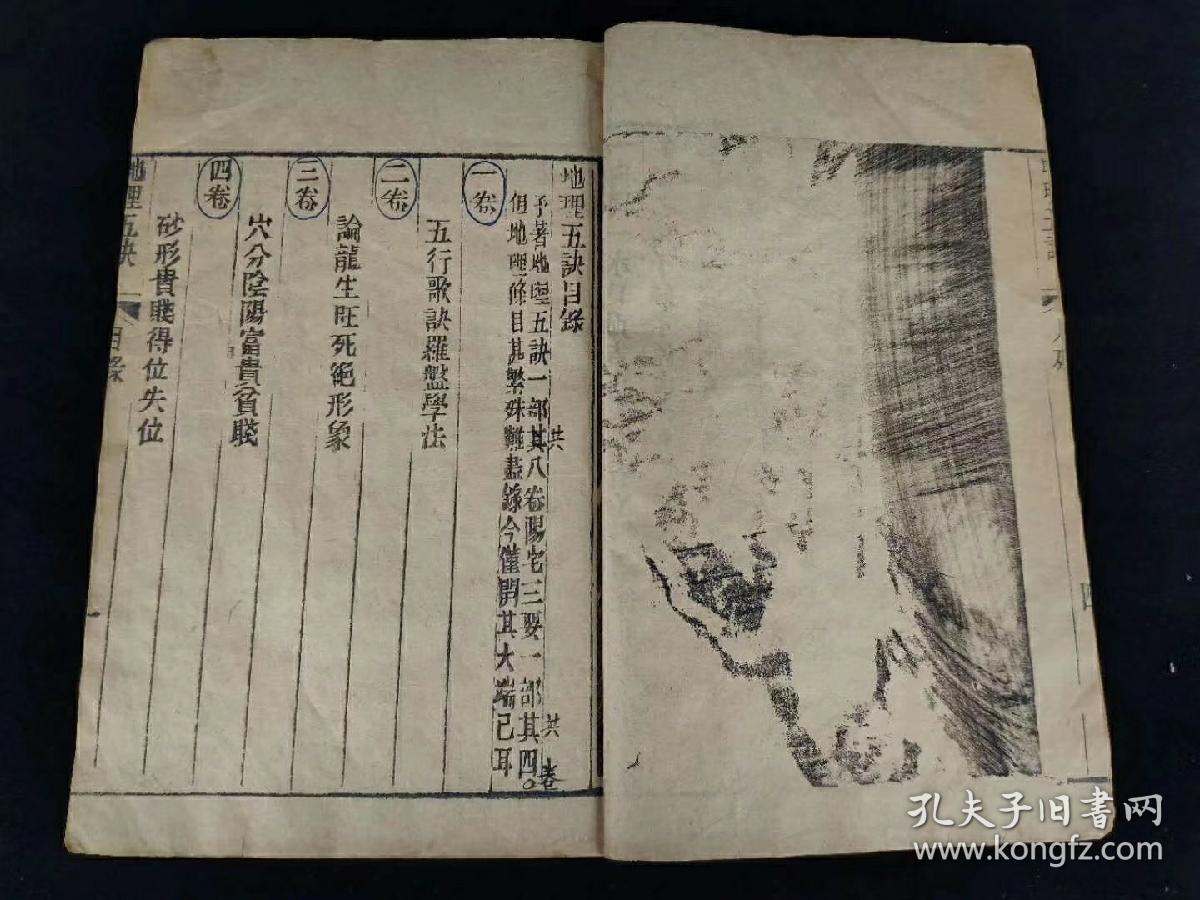 地理五訣目錄
予著地理五訣一部其八卷陽宅三要一部其四
共
共
卷
但地理條目其繁殊難盡錄今僅開其大端已耳
一卷
五行歌訣羅盤學法
二卷
論龍生旺死絕形象
三卷
穴分陰陽富貴貧賤
四卷
砂形貴賤得位失位
地理五訣
目錄
一
四
孔夫子旧书网
www.kongfz.com